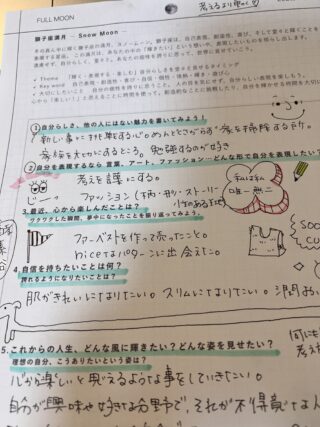 考えるより動く
FULL MOON
獅子座満月 － Snow Moon －
✓ Theme 「輝く・表現する・楽しむ」自分らしさを堂々と愛するタイミング
✓ Key word 自己表現・創造性・喜び・自信・個性・情熱・輝き・遊び心
①自分らしさ、他の人にはない魅力を書いてみよう。
新しい事に挑戦する心。めんどくさがらず家を掃除する所。
家族を大切にするところ。勉強するのが好き
②自分を表現するなら 言葉、アート、ファッション…どんな形で自分を表現したい？
考えを言葉にする。
ファッション（柄・形・ストーリー
3.最近、心から楽しんだことは？
ワクワクした瞬間、夢中になったことを振り返ってみよう。
ファーベストを作って売ったこと。
niceなパターンに出会えた。
4.自信を持ちたいことは何？
誇れるようになりたいことは？
肌がきれいになりたい。スリムになりたい。
5.これからの人生、どんな風に輝きたい？どんな姿を見せたい？
理想の自分、こうありたいという姿は？
心から楽しいと思えるような事をしていきたい。
自分が興味や好きな分野で、それが不得意な人